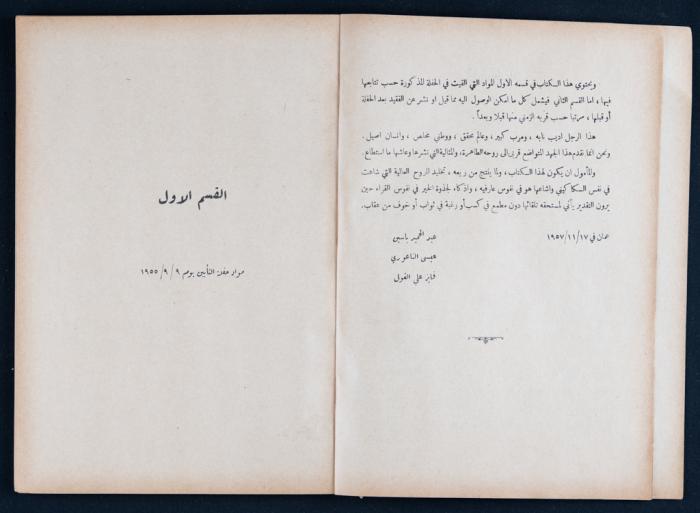 ويحتوي هذا الكتاب في قسمه الاول المواد التي القيت في الحفلة المذكورة حسب تتابعها
فيها ، اما القسم الثاني فيشمل كل ما امكن الوصول اليه مما قيل او نشر عن الفقيد بعد الحفلة
أو قبلها ، مرتبا حسب قربه الزمني منها قبلا وبعداً .
هذا الرجل اديب نابه ، ومرب كبير ، وعالم محقق ، ووطني مخلص ، وانسان اصيل .
ونحن انما نقدم هذا الجهد المتواضع قربى الى روحه الطاهرة، والمثالية التي نشرها وعاشها ما استطاع.
والمأمول ان يكون لهذا الكتاب ، ولما ينتج من ريعه ، تخليد للروح العالية التي شاعت
في نفس السكاكيني واشاعها هو في نفوس عارفيه ، واذكاء لجذوة الخير في نفوس القراء حين
يرون التقدير يأتي لمستحقه تلقائيا دون مطمع في كسب أو رغبة في ثواب أو خوف من عقاب.
عمان في ١٩٥٧/١١/١٧
عبد الحميد ياسين
عيسى الناعوري
فايز علي الغول
القسم الاول
مواد حفلة التأبين يوم ٩ / ٩ / ١٩٥٥